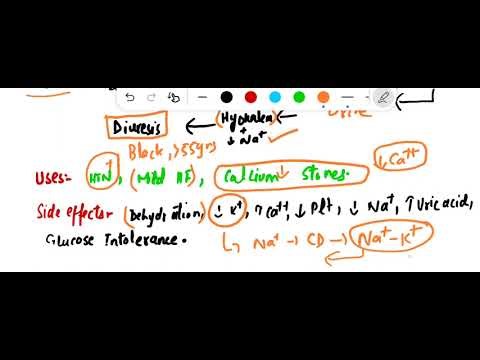 Urine
Diuresis ← (Hyokalea ←
↓ Na⁺
Black, >55yrs
Uses:- HTN, (Mild HF), Calcium↓ Stones. ↓Ca²⁺
Side effector (Dehydration), ↓ K⁺, ↑Ca⁺⁺, ↓ Plt, ↓ Na⁺, ↑ Uric acid,
Glucose Intolerance. ↳ Na⁺ → CD → Na⁺-K⁺